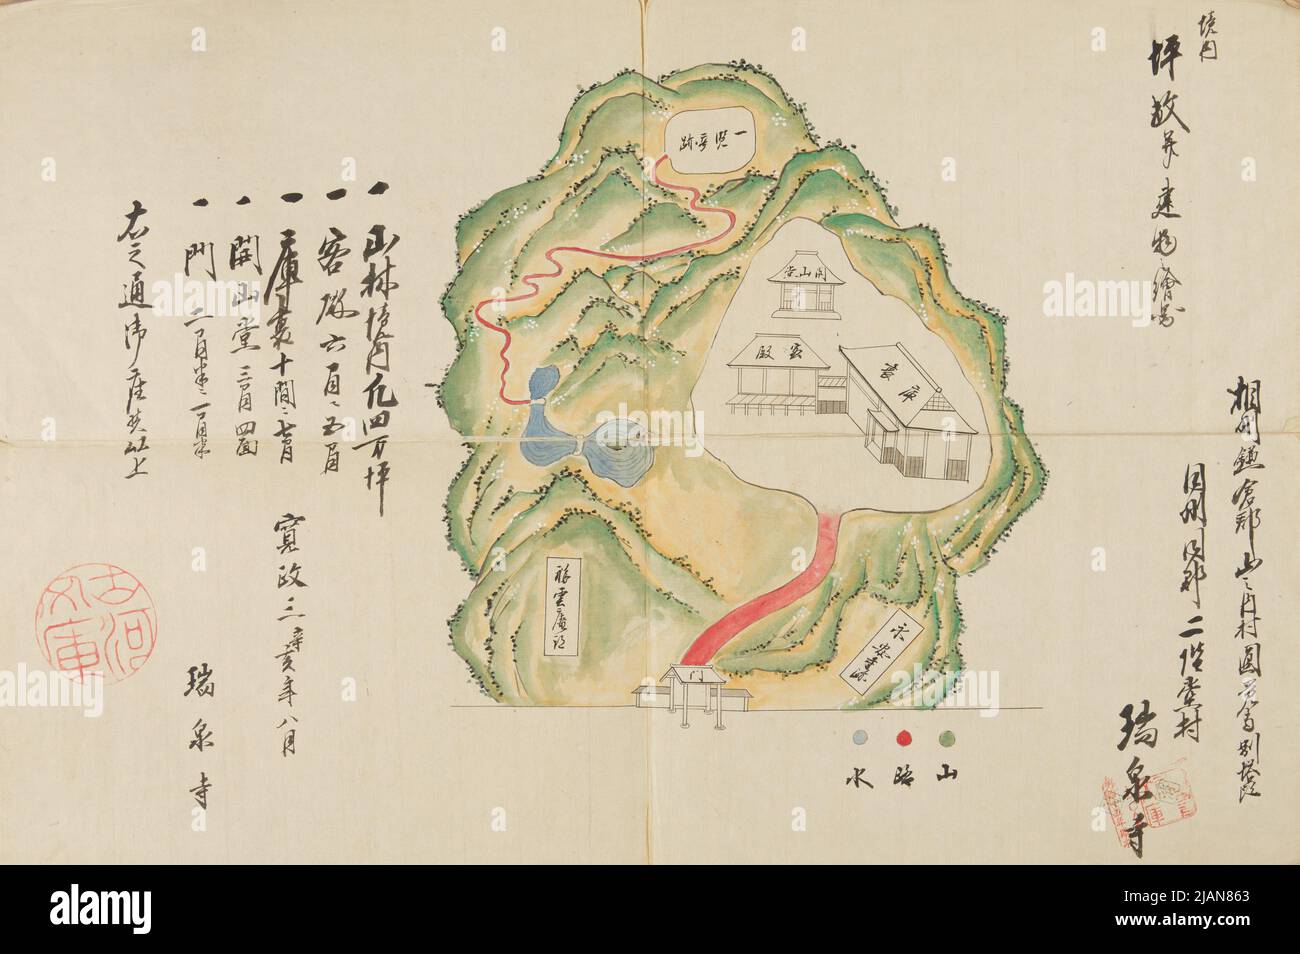 境内
坪数并建物繪図
相州鎌倉郡山之内村圓覚寺別塔頭
同州同郡二階堂村
瑞泉寺
一覧亭跡
開山堂
客殿
庫裏
永安寺跡
門
山
路
水
一 山林境内凡四万坪
一 客殿 六間ニ五間
一 庫裏 十間ニ七間
一 開山堂 三間四面
一 門 二間半ニ一間半
右之通御座候以上
寛政三辛亥年八月
瑞泉寺
古河文庫
alamy
Image ID: 2JAN863
www.alamy.com